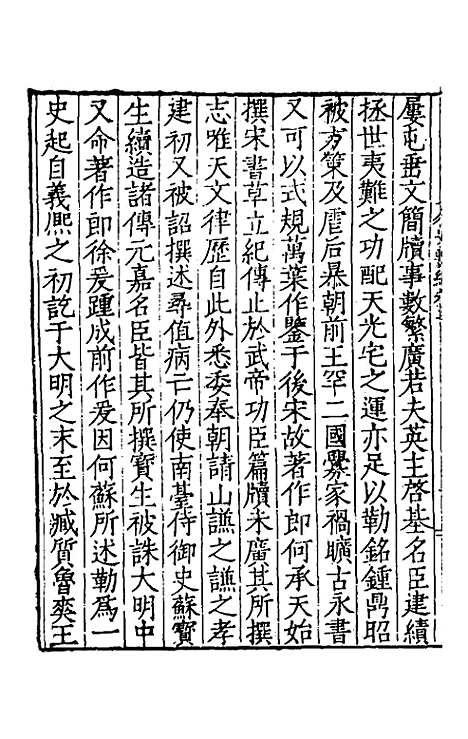 屢屯垂文簡牘事數繁廣若夫英主啓基名臣建績
拯世夷難之功配天光宅之運亦足以勒銘鍾鼎昭
被方策及虐后暴朝前王罕二國釁家禍曠古永書
又可以式規萬葉作鑒于後宋故著作郎何承天始
撰宋書草立紀傳止於武帝功臣篇牘未廣其所撰
志唯天文律歷自此外悉委奉朝請山謙之謙之孝
建初又被詔撰述尋值病亡仍使南臺侍御史蘇寶
生續造諸傳元嘉名臣皆其所撰寶生被誅大明中
又命著作郎徐爰踵成前作爰因何蘇所述勒爲一
史起自義熙之初訖于大明之末至於臧質魯爽王